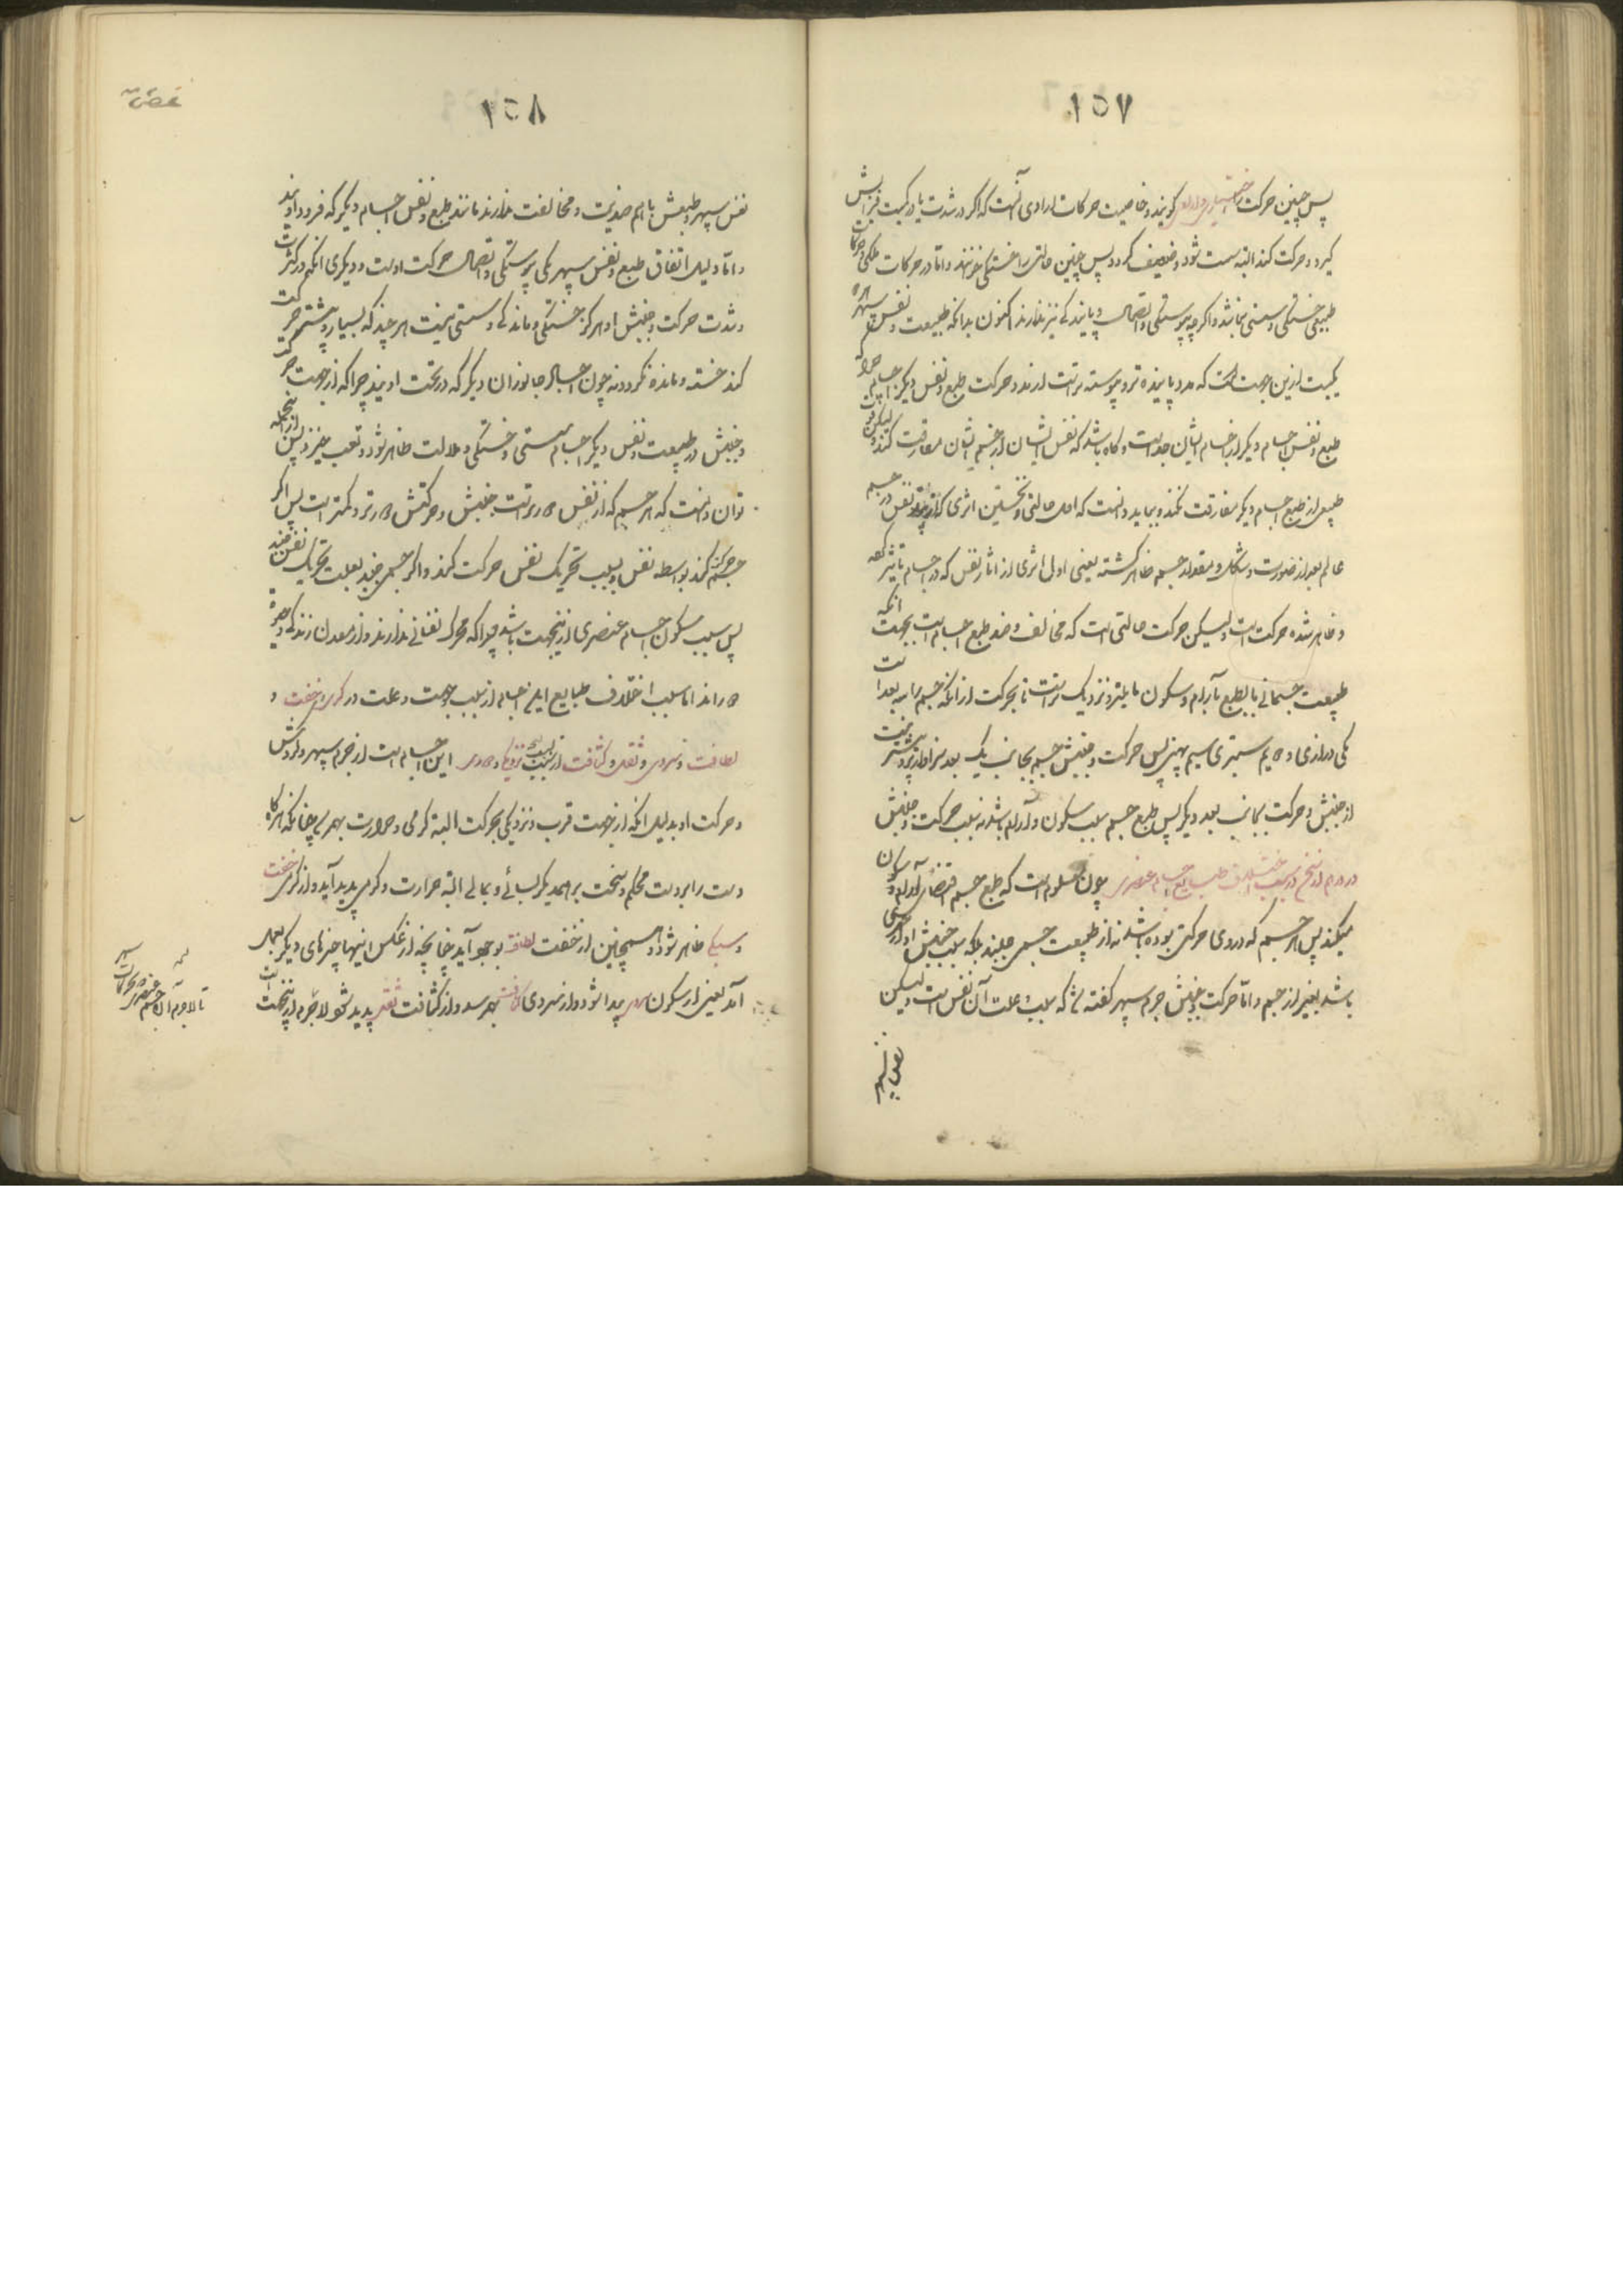 ١٥٧
پس چنین حرکت را اختیاری و ارادی گویند و خاصیت حرکات ارادی آنست که اگر در شدت یا در کمیت فزایش
گیرد و حرکت کند البته سست شود و ضعیف گردد پس چنین حالتی را خستگی خوانند و اما در حرکات فلکی و حرکات
طبیعی خستگی و سستی نباشد و اگرچه پیوستگی و اتصال و پایندگی نیز ندارند اکنون بدانکه طبیعت و نفس سپهر
یکیست ازین جهت است که مدد پاینده تر و پیوسته تر است ازند و حرکت طبع و نفس دیگر اجسام چرا که
طبع و نفس اجسام دیگر از اجسام ایشان جداست و گاه باشد که نفس ایشان از جسم ایشان مفارقت کند ولیکن
طبیعی از طبع اجسام دیگر مفارقت نکند و بباید دانست که اول حالتی و نخستین اثری که از نفس در جسم
عالم بعد از صورت و شکل و مقدار جسم ظاهر گشته یعنی اول اثری از آثار نفس که در اجسام تاثیر کرده
و ظاهر شده حرکت است ولیکن حرکت حالتی است که مخالف و ضد طبع اجسام است بجهت آنکه
طبیعت جسمانی بالطبع بآرام و سکون مایلتر و نزدیک تر است تا بحرکت از آنکه جسم را سه بعد است
یکی درازی دویم ستبری سیم پهنی پس حرکت و جنبش جسم بجانب یک بعد سزاوارتر و بیشتر نیست
از جنبش و حرکت بجانب بعد دیگر پس طبع جسم سبب سکون و آرام باشد نه سبب حرکت و جنبش
در دوم از نخ در سبب اختلاف طبایع اجسام عنصری چون معلوم است که طبع جسم اقتضای آرام و سکون
میکند پس هر جسم که در وی حرکتی بوده باشد نه از طبیعت جسمی جنبد بلکه سبب جنبش او از چیزی
باشد بغیر از جسم و اما حرکت و جنبش جرم سپهر گفته شد که سبب و علت آن نفس است ولیکن
نفس سپهر
١٥٨
نفس سپهر و طبعش باهم ضدیت و مخالفت ندارند مانند طبع و نفس اجسام دیگر که فرود اویند
و اما دلیل اتفاق طبع و نفس سپهر یکی پیوستگی و اتصال حرکت اوست و دیگری آنکه در کثرت
و شدت حرکت و جنبش او هرگز خستگی و ماندگی و سستی نیست هر چند که بسیار و بیشتر حرکت
کند خسته و مانده نگردد نه چون اجسام جانوران دیگر که در تحت اویند چرا که از جهت حرکت
و جنبش در طبیعت و نفس دیگر اجسام سستی و خستگی و ملالت ظاهر شود و تعب پس از اینجا
توان دانست که هر جسم که از نفس دورتر است جنبش و حرکتش دورتر و کمتر است پس اگر
جسم حرکت کند بواسطه نفس و بسبب تحریک نفس حرکت کند و اگر جسمی جنبد بعلت تحریک نفس جنبد
پس سبب سکون اجسام عنصری از اینجهت باشد چرا که محرک نفسانی ندارند و از معدن زندگی
دورند اما سبب اختلاف طبایع این اجسام از سبب جهت و علت در گرمی و خفت و
لطافت و سردی و ثقل و کثافت از سبب نزدیکی و دوری این اجسام است از جرم سپهر و گردش
و حرکت او بدلیل آنکه از جهت قرب و نزدیکی بحرکت البته گرمی و حرارت بهم رسد چنانکه هر گاه
دست را بر دست محکم و سخت بر همدیگر بسائی و بمالی البته حرارت و گرمی پدید آید و از گرمی خفت
و سبکی ظاهر شود و همچنین از خفت لطافت بوجود آید چنانچه از عکس اینها چیزهای دیگر بعمل
آید یعنی از سکون سردی پیدا شود و از سردی کثافت بهم رسد و از کثافت ثقل پدید شود لاجرم از اینجهت است